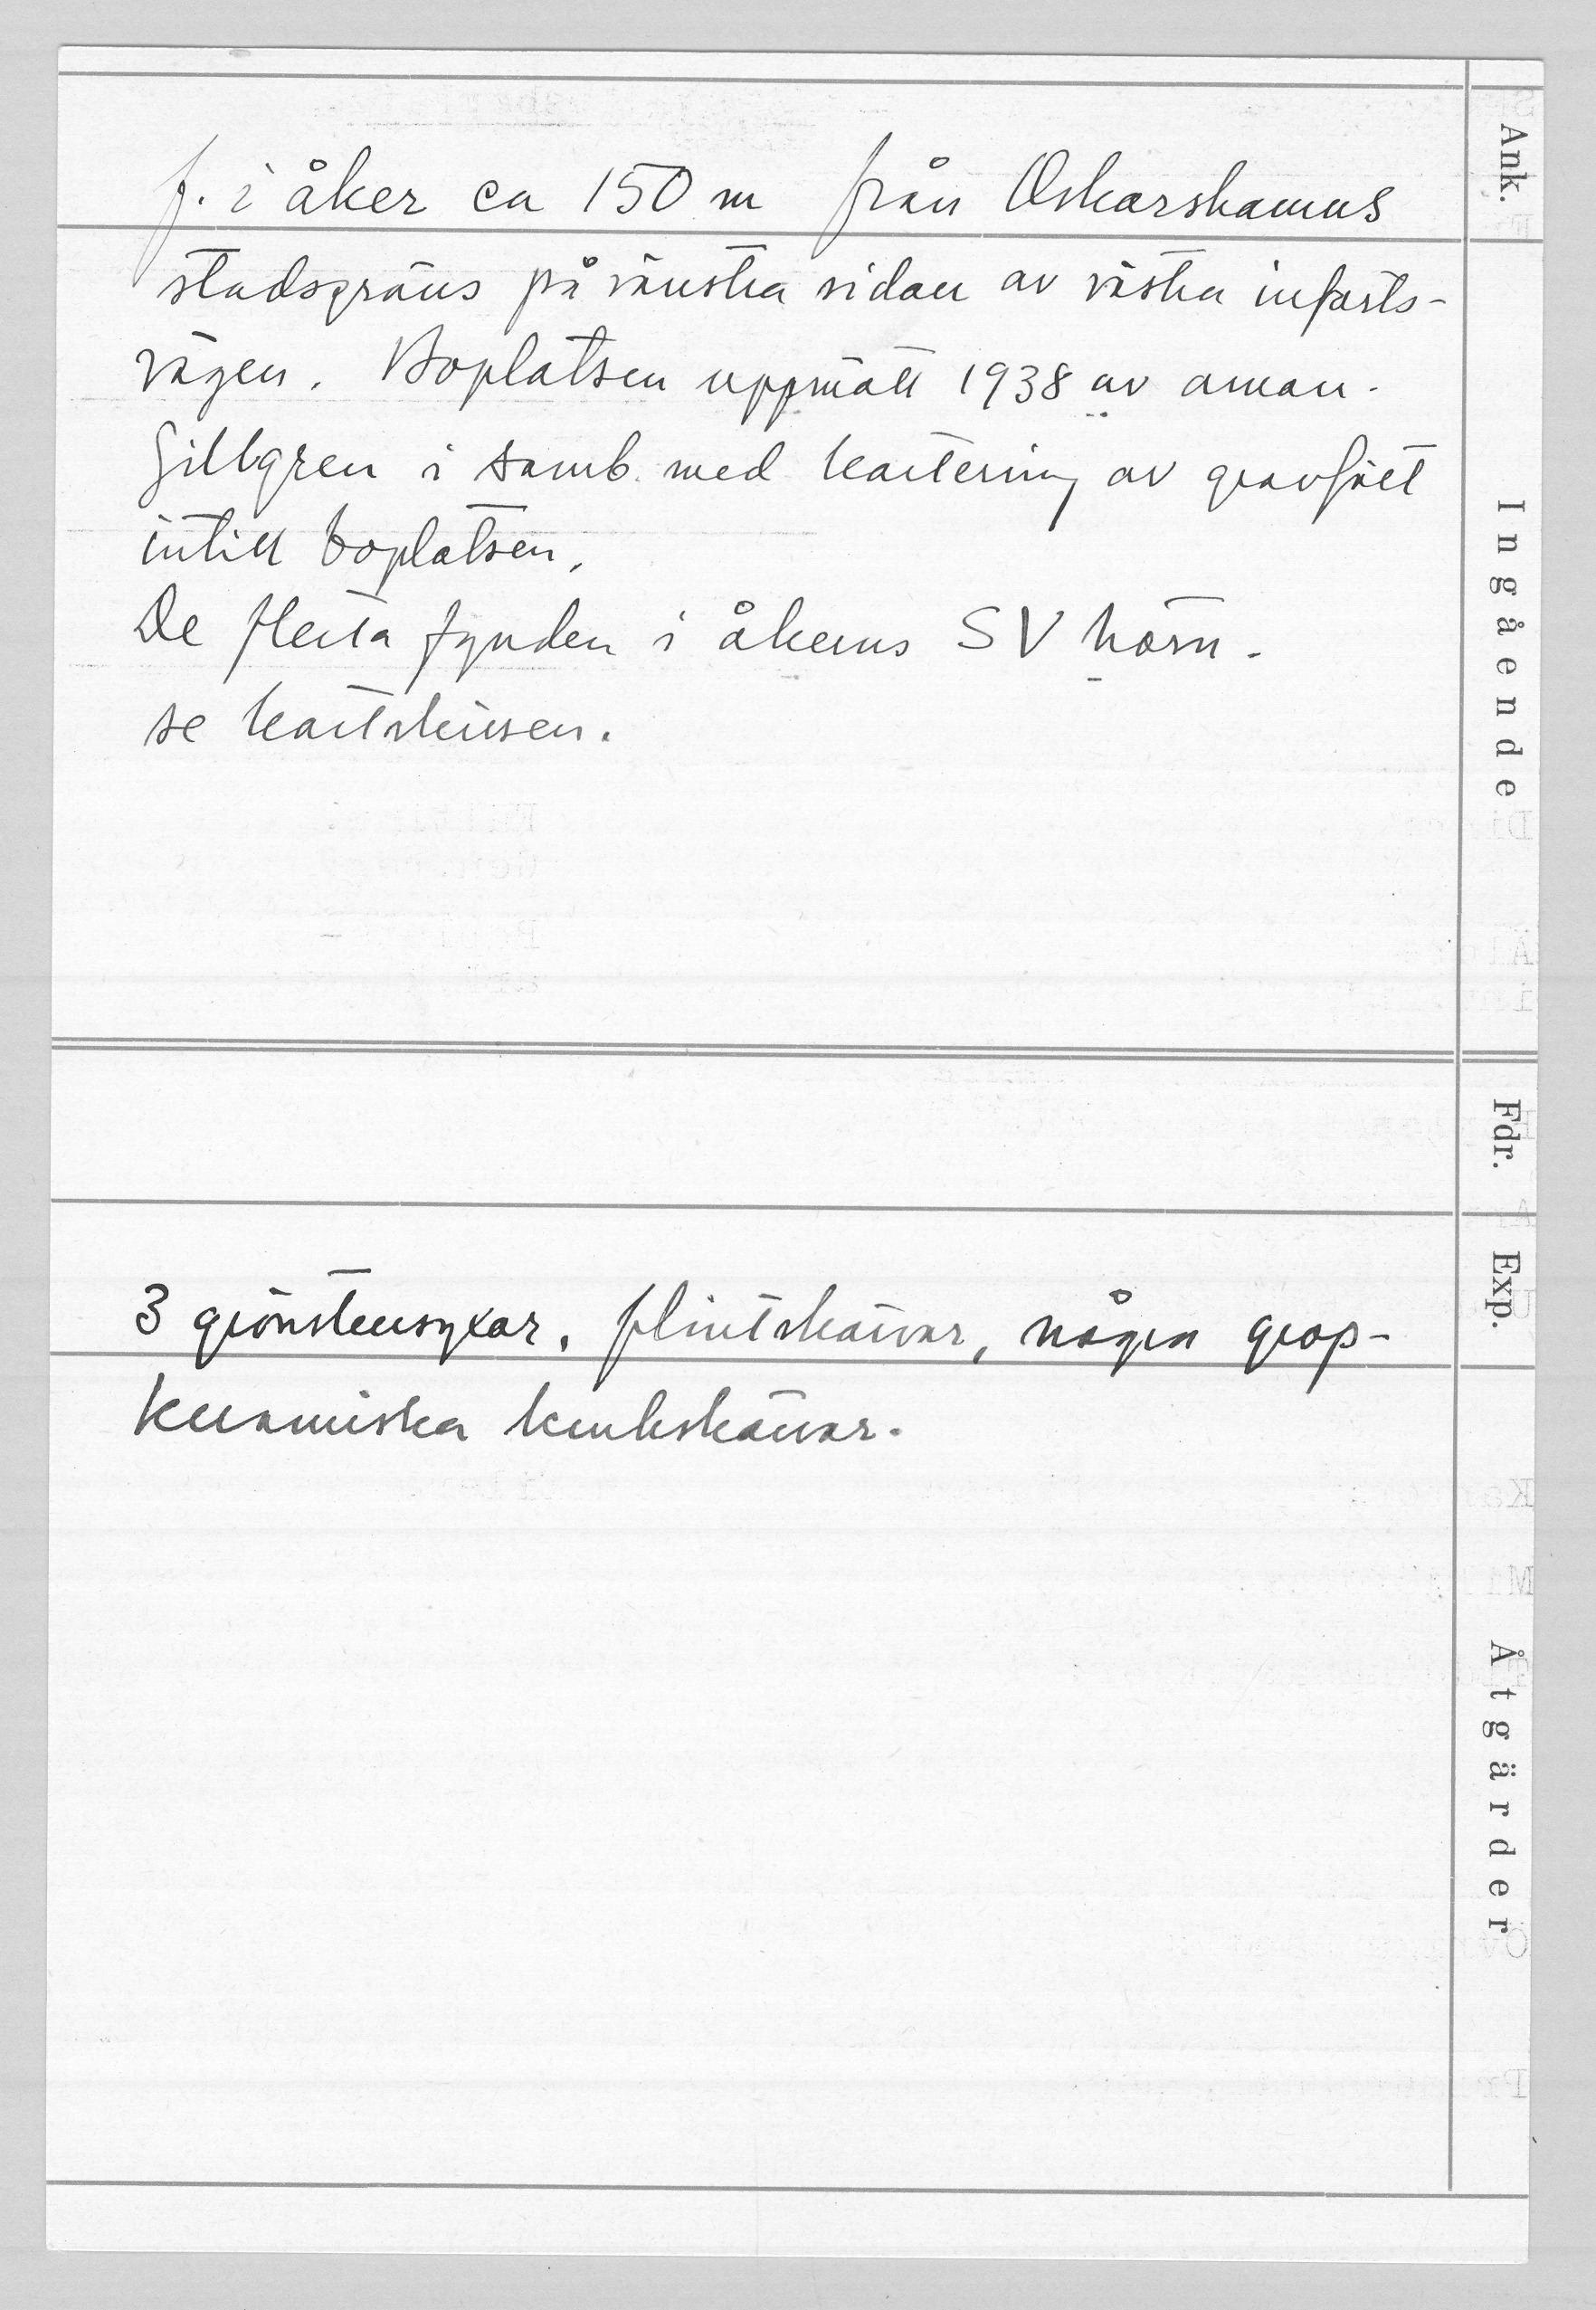 Ank.
f. i åker ca 150 m från Oskarshamns
stadsgräns på vänstra sidan av västra infarts-
vägen. Boplatsen uppmätt 1938 av aman.
Gillgren i samb. med kartering av gravfält
intill boplatsen.
De flesta fynden i åkerns SV hörn.
se kartskissen.
Ingående
Fdr.
Exp.
3 grönstensyxor, flintskärvor, några grop-
keramiska krukskärvor.
Åtgärder